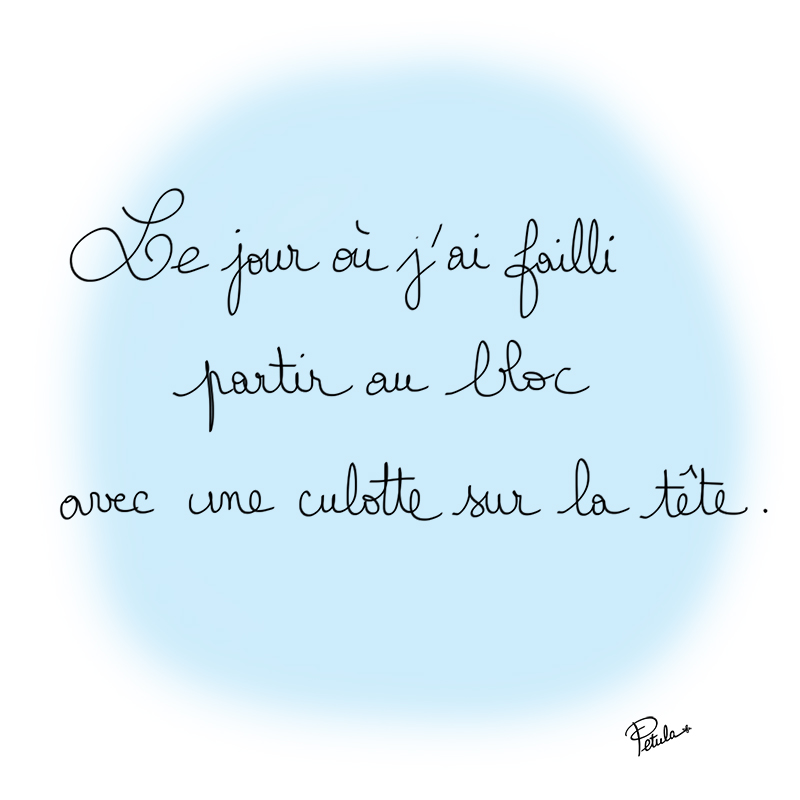 Le jour où j'ai failli
partir au bloc
avec une culotte sur la tête.
Petula